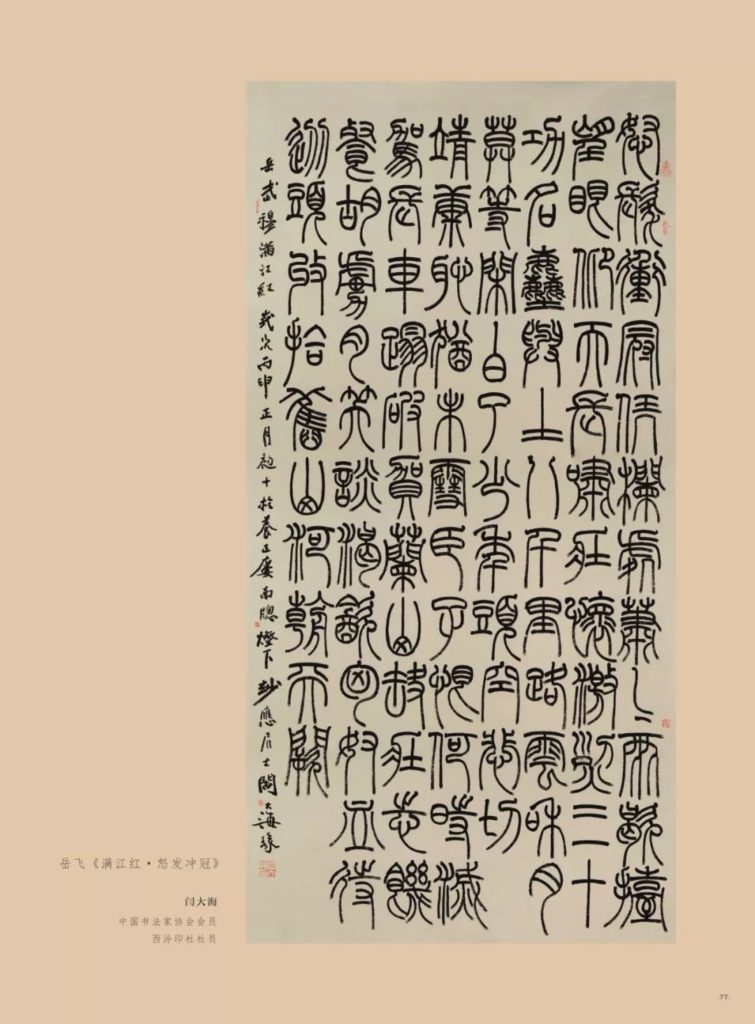 怒髮衝冠凭欄處蕭〻雨歇擡
望眼仰天長嘯壯懷激烈三十
功名塵與土八千里路雲和月
莫等閑白了少年頭空悲切
靖康恥猶未雪臣子恨何時滅
駕長車蹋破賀蘭山缺壯志飢
餐胡虜肉笑談渴飲匈奴血待
從頭收拾舊山河朝天闕
岳武穆滿江紅歲次丙申正月初十於養正廬南牕燈下妙應居士閻大海篆
岳飞《满江红·怒发冲冠》
闫大海
中国书法家协会会员
西泠印社社员
.77.